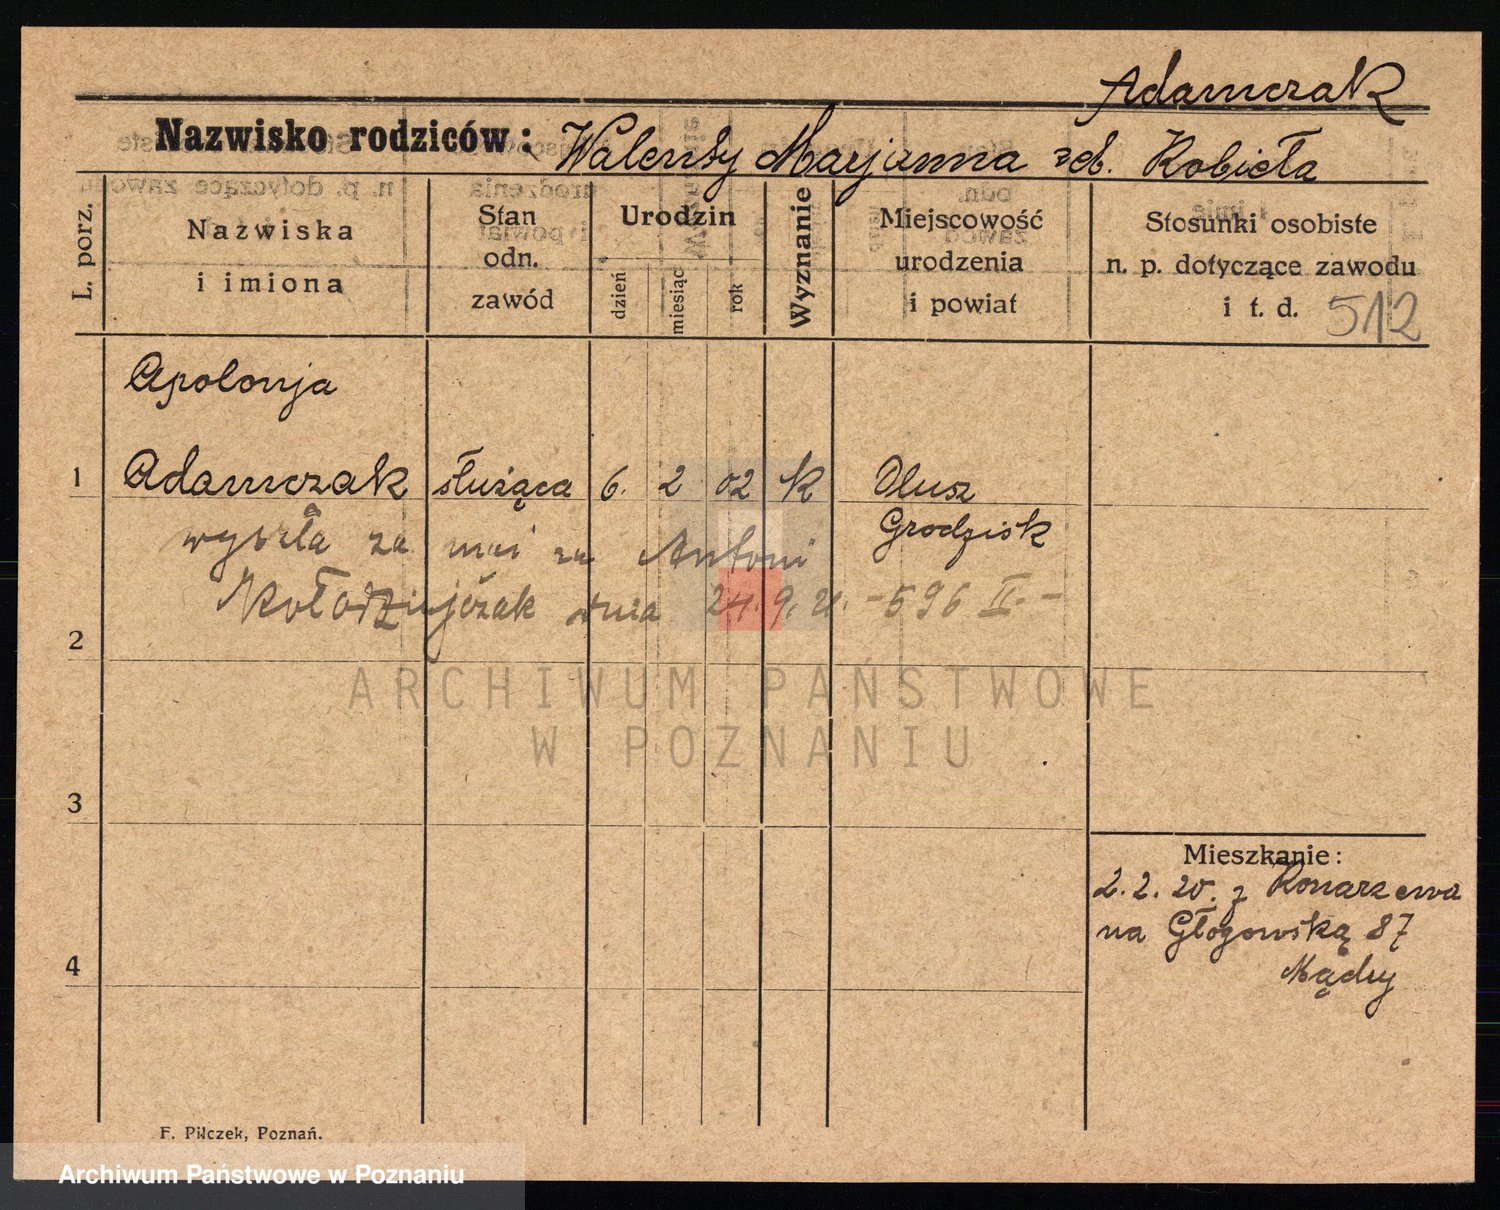 Adamczak
Nazwisko rodziców: Walenty Marjanna reb. Kobieła
L. porz.
Nazwiska
i imiona
Stan
odn.
zawód
Urodzin
dzień
miesiąc
rok
Wyznanie
Miejscowość
urodzenia
i powiat
Stosunki osobiste
n. p. dotyczące zawodu
i t. d. 512
Apolonja
1 Adamczak służąca 6. 2 02 K Ulusz
Grodzisk
wyszła za Antoni
Kołodziejczak dnia 24.9.21. -596 II.-
2
3
4
Mieszkanie:
2.2.20. z Konarzewa
na Głogowską 87
Mądry
F. Pilczek, Poznań.
ARCHIWUM PAŃSTWOWE
W POZNANIU
Archiwum Państwowe w Poznaniu